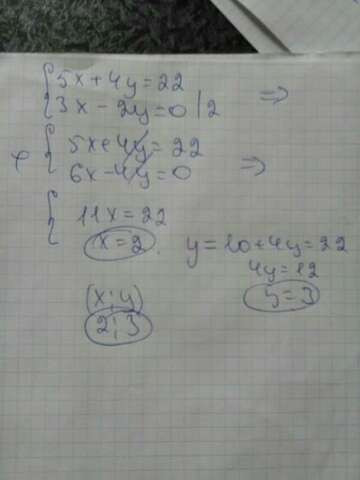 5x+4y=22
3x-2y=0|2 =>
+ 5x+4y=22
6x-4y=0 =>
11x=22
x=2. y=10+4y=22
4y=12
5=3
(x;y)
2;3